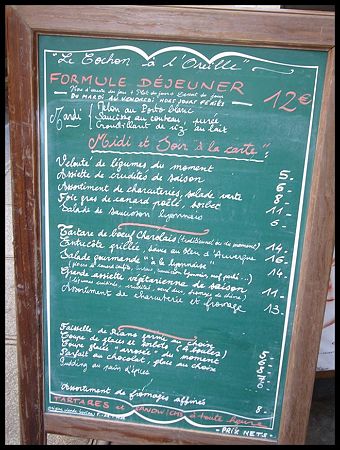 "Le Cochon à l'Oreille"
FORMULE DÉJEUNER
DU MARDI AU VENDREDI HORS JOURS FÉRIÉS
12€
Mardi
Melon au Porto blanc
Saucisse au couteau, purée
Croustillant de riz au lait
"Midi et Soir à la carte":
Velouté de légumes du moment 5.-
Assiette de crudités de saison 6.-
Assortiment de charcuteries, salade verte 8.-
Foie gras de canard poêlé, sorbet 11.-
Salade de saucisson lyonnais 6.-
Tartare de boeuf Charolais (traditionnel ou du moment) 14.-
Entrecôte grillée, sauce au bleu d'Auvergne 16.-
Salade gourmande "à la lyonnaise" 14.-
Grande assiette végétarienne de saison 11.-
Assortiment de charcuterie et fromage 13.-
Faisselle de
Coupe de glaces et sorbets (2 boules)
Coupe glacée "arrosée" du moment
Parfait au chocolat, glace au choix
Pudding au pain d'épices
Assortiment de fromages affinés 8.-
TARTARES et SANDWICHS à toute heure
PRIX NETS